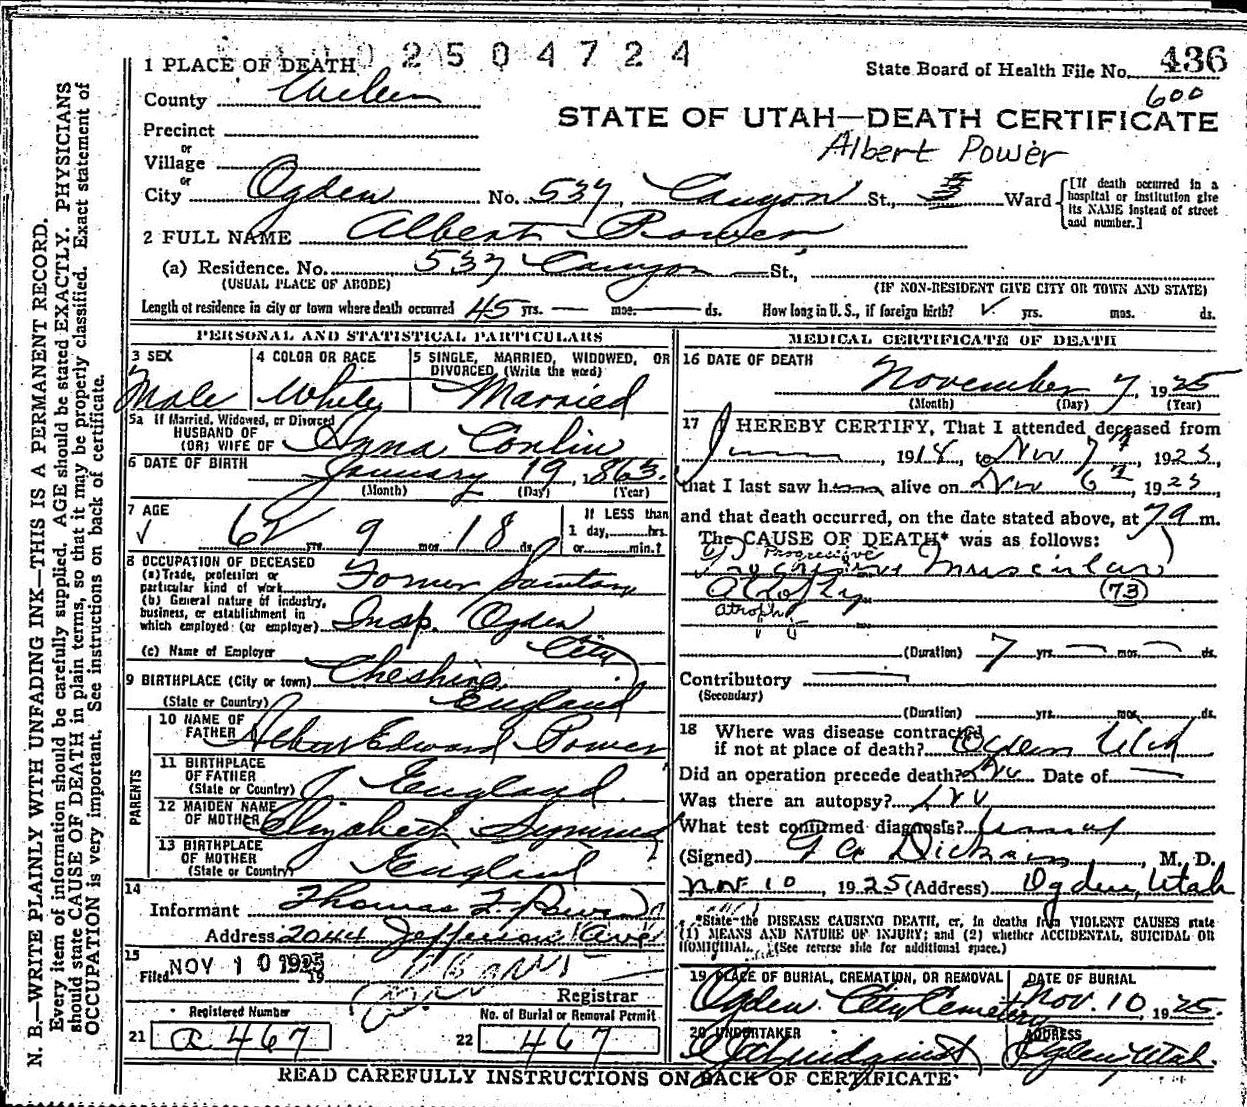 02504724
436
1 PLACE OF DEATH
State Board of Health File No.
600
County
STATE OF UTAH—DEATH CERTIFICATE
Precinct
Albert Power
or
Village
or
City Ogden No. 537, Canyon St., 3 Ward
[If death occurred in a hospital or institution give its NAME instead of street and number.]
2 FULL NAME Albert Power
(a) Residence. No. 537 Canyon St.,
(USUAL PLACE OF ABODE) (IF NON-RESIDENT GIVE CITY OR TOWN AND STATE)
Length of residence in city or town where death occurred 45 yrs. — mos. — ds. How long in U. S., if foreign birth? ✓ yrs. mos. ds.
PERSONAL AND STATISTICAL PARTICULARS
3 SEX 4 COLOR OR RACE 5 SINGLE, MARRIED, WIDOWED, OR DIVORCED, (Write the word)
Male White Married
5a If Married, Widowed, or Divorced
HUSBAND OF
(OR) WIFE OF Conlin
6 DATE OF BIRTH January 19, 1863.
(Month) (Day) (Year)
7 AGE If LESS than
✓ 62 yrs. 9 mos. 18 ds. 1 day, hrs.
or min.?
8 OCCUPATION OF DECEASED
(a) Trade, profession or particular kind of work Former Sanitary
(b) General nature of industry, business, or establishment in which employed (or employer) Insp. Ogden
(c) Name of Employer City
9 BIRTHPLACE (City or town) Cheshire,
(State or Country) England
PARENTS
10 NAME OF FATHER Albert Edward Power
11 BIRTHPLACE OF FATHER
(State or Country) England.
12 MAIDEN NAME OF MOTHER Elizabeth
13 BIRTHPLACE OF MOTHER
(State or Country) England
14 Informant Thomas F. Power
Address 2044 Jefferson Ave
15 Filed NOV 10 1925 19
Registrar
Registered Number No. of Burial or Removal Permit
21 a 467 22 467
MEDICAL CERTIFICATE OF DEATH
16 DATE OF DEATH
November 7, 1925
(Month) (Day) (Year)
17 I HEREBY CERTIFY, That I attended deceased from
June, 1918, to Nov 7th, 1925,
that I last saw him alive on Nov 6th, 1925,
and that death occurred, on the date stated above, at 7 a m.
The CAUSE OF DEATH* was as follows:
Progressive
Progressive Muscular
Atrophy (73)
Atrophy
(Duration) 7 yrs. — mos. — ds.
Contributory —
(Secondary)
(Duration) yrs. mos. ds.
18 Where was disease contracted
if not at place of death? Ogden Utah
Did an operation precede death? No Date of —
Was there an autopsy? No
What test confirmed diagnosis? Usual
(Signed) Dickson, M. D.
Nov. 10, 1925 (Address) Ogden, Utah
*State the DISEASE CAUSING DEATH, or, in deaths from VIOLENT CAUSES state
(1) MEANS AND NATURE OF INJURY; and (2) whether ACCIDENTAL, SUICIDAL OR
HOMICIDAL. (See reverse side for additional space.)
19 PLACE OF BURIAL, CREMATION, OR REMOVAL DATE OF BURIAL
Ogden City Cemetery Nov. 10, 1925.
20 UNDERTAKER ADDRESS
Lindquist Ogden, Utah.
READ CAREFULLY INSTRUCTIONS ON BACK OF CERTIFICATE
N. B.—WRITE PLAINLY WITH UNFADING INK—THIS IS A PERMANENT RECORD.
Every item of information should be carefully supplied. AGE should be stated EXACTLY. PHYSICIANS
should state CAUSE OF DEATH in plain terms, so that it may be properly classified. Exact statement of
OCCUPATION is very important. See instructions on back of certificate.